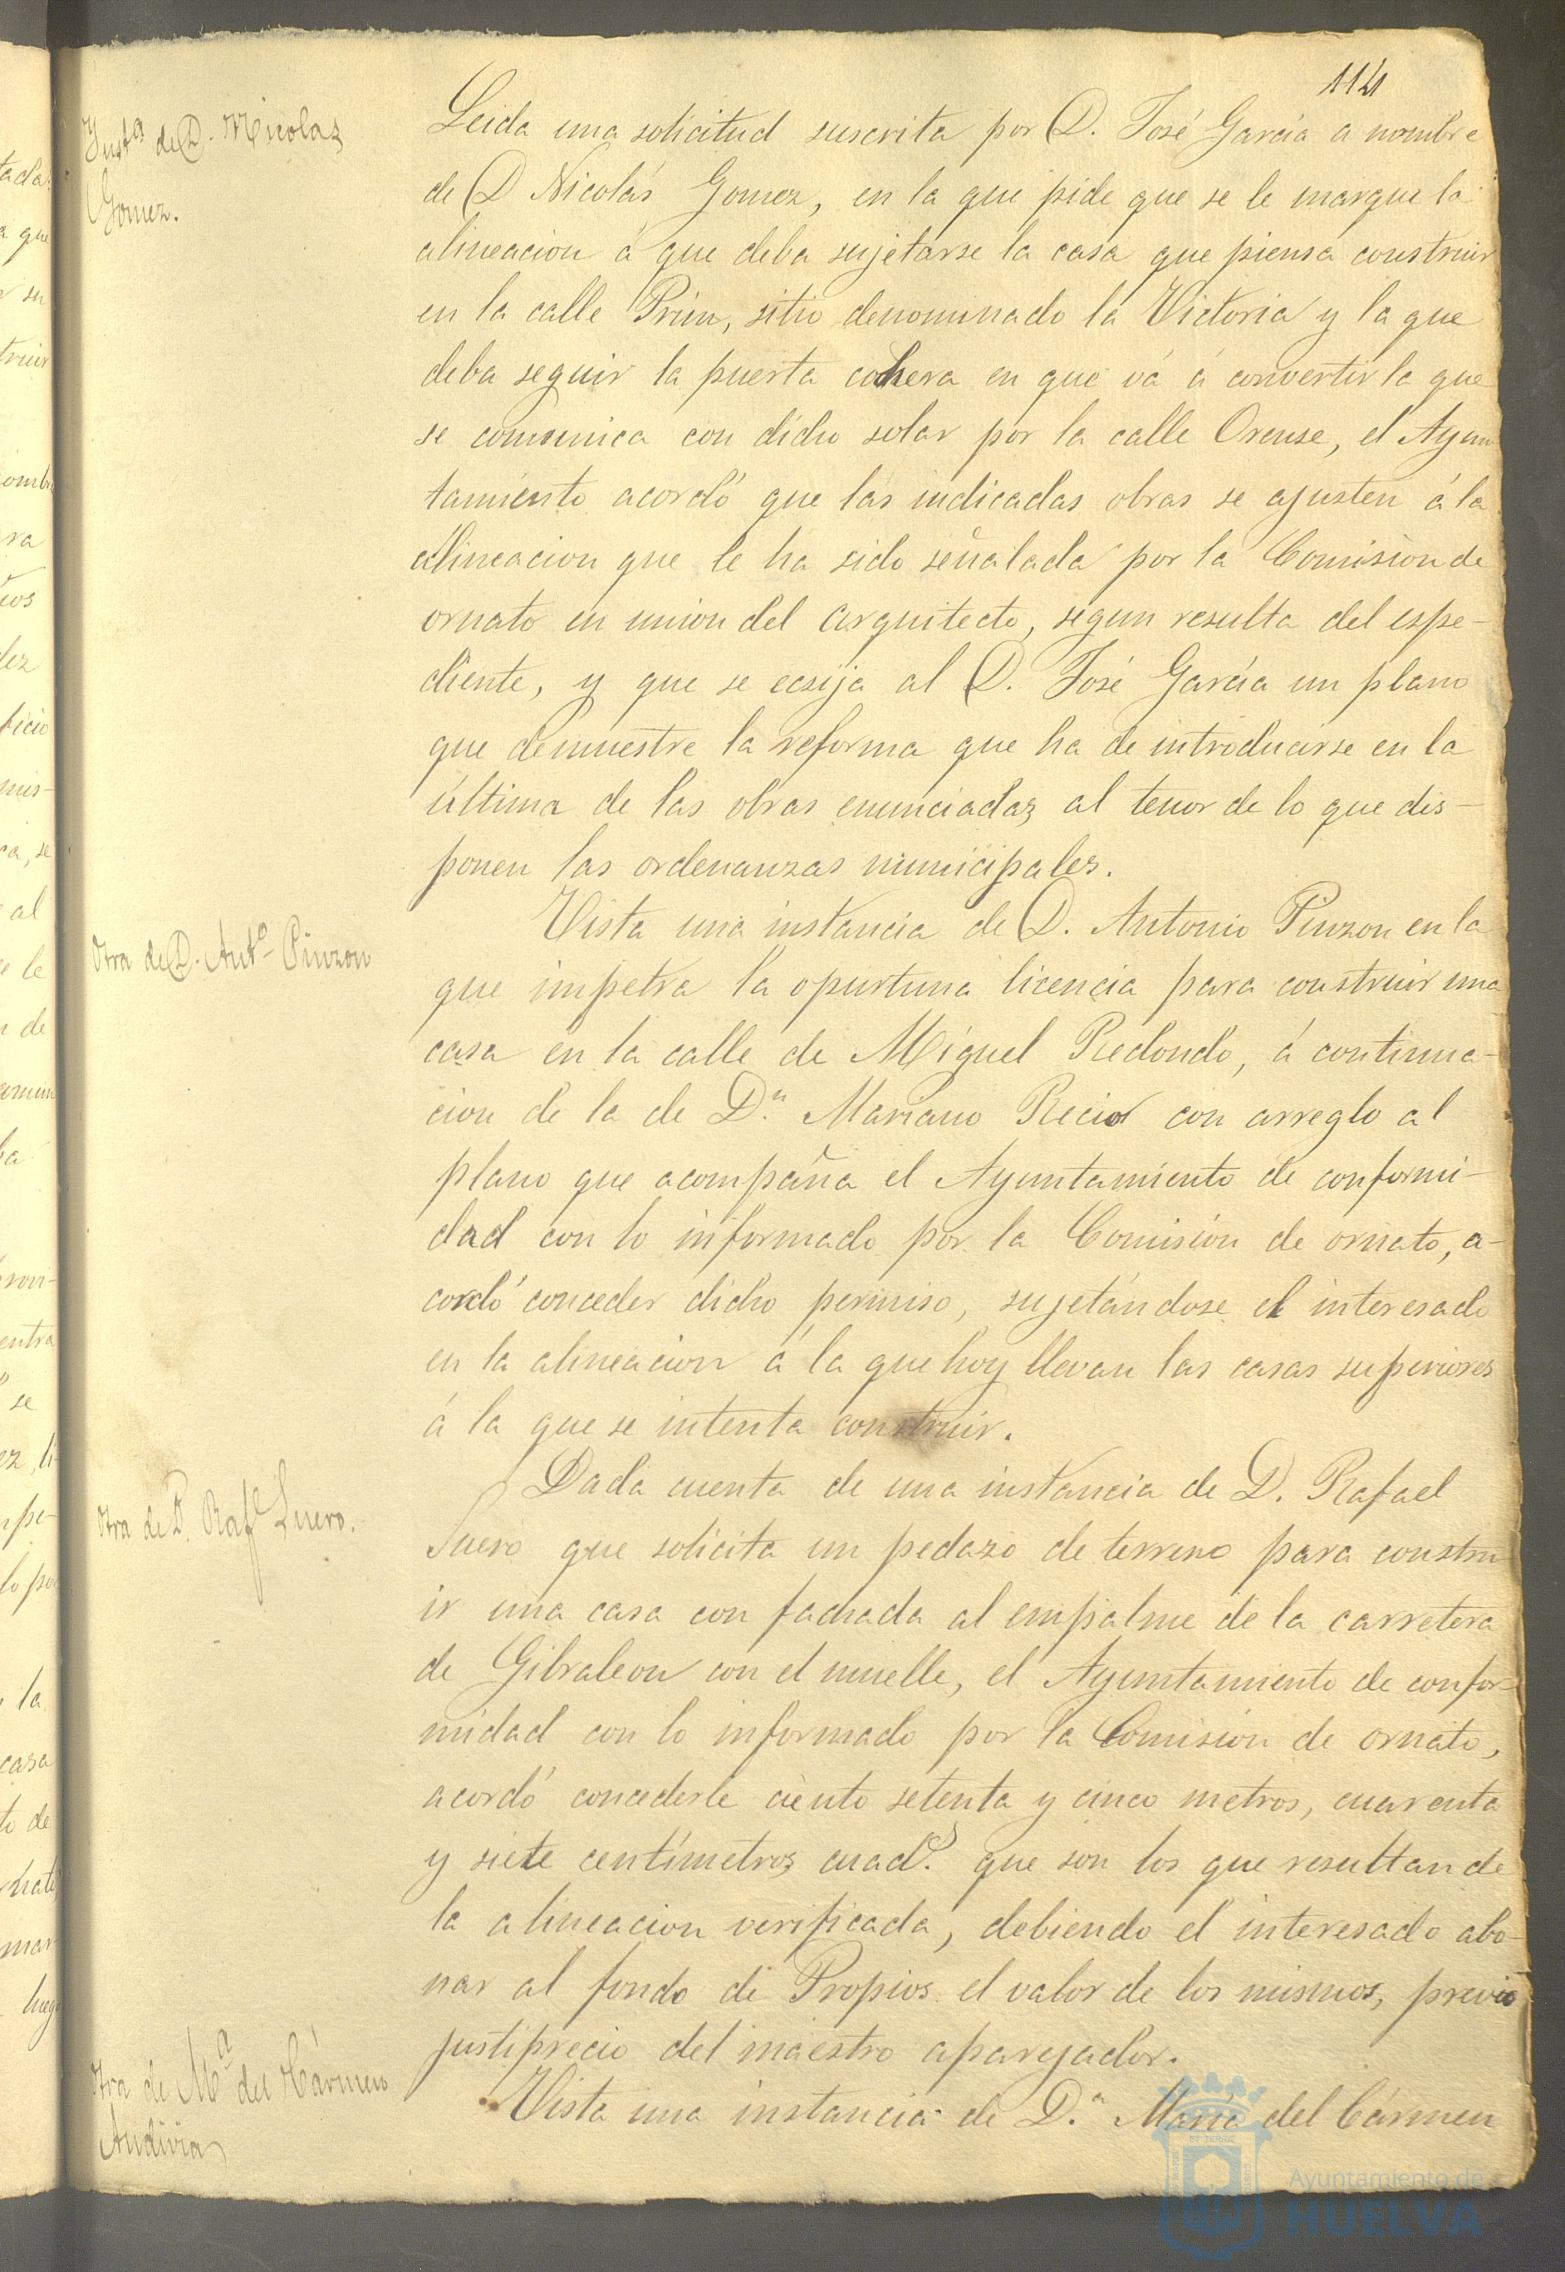 114
Inst.ª de D. Nicolas
Gomez.
Leida una solicitud suscrita por D. José García a nombre
de D Nicolás Gomez, en la que pide que se le marque la
alineacion á que deba sujetarse la casa que piensa construir
en la calle Prim, sitio denominado la Victoria y la que
deba seguir la puerta cochera en que vá á convertir la que
se comunica con dicho solar por la calle Orense, el Ayun
tamiento acordó que las indicadas obras se ajusten á la
alineacion que le ha sido señalada por la Comision de
ornato en union del arquitecto, segun resulta del espe-
diente, y que se ecsija al D. José García un plano
que demuestre la reforma que ha de introducirse en la
última de las obras enunciadas, al tenor de lo que dis-
ponen las ordenanzas municipales.
Otra de D. Antº Pinzon
Vista una instancia de D. Antonio Pinzon en la
que impetra la oportuna licencia para construir una
casa en la calle de Miguel Redondo, á continua-
cion de la de D.n Mariano Recio con arreglo al
plano que acompaña el Ayuntamiento de conformi-
dad con lo informado por la Comision de ornato, a-
cordó conceder dicho permiso, sujetándose el interesado
en la alineacion á la que hoy llevan las casas superiores
á la que se intenta construir.
Otra de D. Raf.l Suero.
Dada cuenta de una instancia de D. Rafael
Suero que solicita un pedazo de terreno para constru
ir una casa con fachada al empalme de la carretera
de Gibraleon con el muelle, el Ayuntamiento de confor-
midad con lo informado por la Comision de ornato,
acordó concederle ciento setenta y cinco metros, cuarenta
y siete centímetros cuad.s que son los que resultan de
la alineacion verificada, debiendo el interesado abo-
nar al fondo de Propios el valor de los mismos, previo
justiprecio del maestro aparejador.
Otra de M.ª del Cármen
Andivia
Vista una instancia de D.ª María del Cármen
Ayuntamiento de
HUELVA